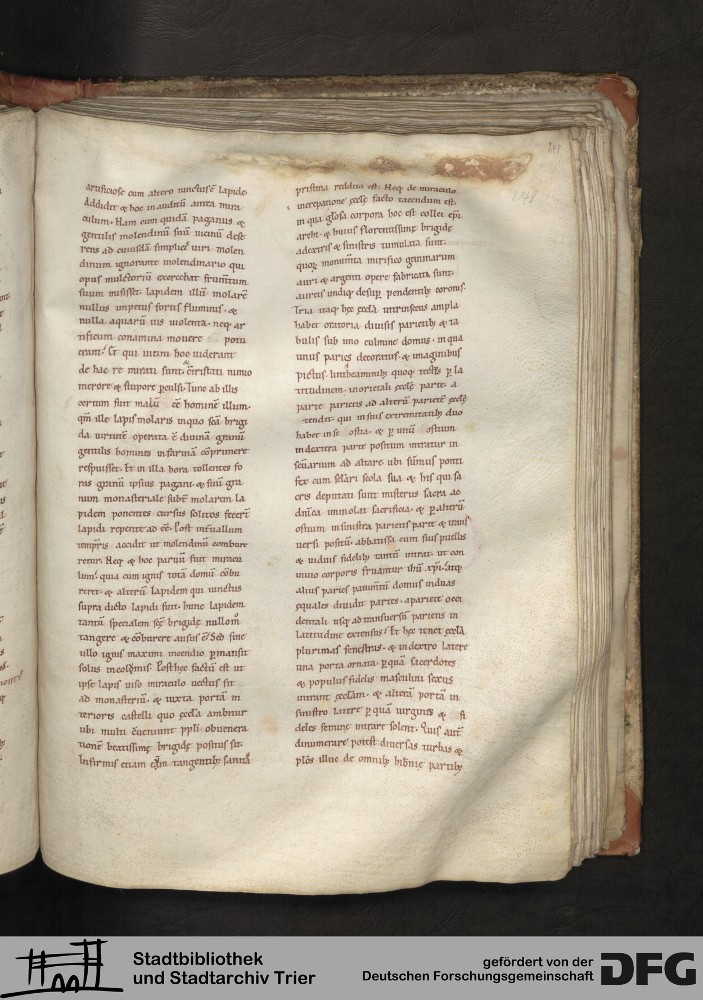 248
artificiose cum altero iunctus ē lapide.
Addidit & hoc in auditū antea mira
culum. Nam cum quidā paganus &
gentilis molendinū suū uicinū dest
rens ad cuiusdā simplicē uiri molen
dinum ignorante molendinario qui
opus
suum misisset. lapidem illū molarē
nullus impetus fortis fluminis. &
nulla aquarū uis uiolenta. neq; ar
tificum conamina mouere potu
erant. Et qui uicini hoc uiderant
de hac re mirati sunt. cōtristati nimio
merore & stupore Tunc ab illis
certum fuit malū eē hominē illum.
qm̄ ille lapis molaris inquo scā brigi
da uirtutē operata ē diuinā granū
gentilis hominis infarinā cōprimere
respuisset. Et in illa hora tollentes fo
ras granū ipsius pagani. & suū gra
num monasteriale subtꝰ molarem la
pidem ponentes cursus solitos fecert̄
lapidi repente ad eē. Post int̄uallum
temp̄ris accidit ut molendinū combure
retur. Neq; & hoc paruū fuit miracu
lum. quia cum ignis totā domū cōbu
reret. & alterū lapidem qui iunctus
supra dicto lapidi fuit. hunc lapidem
tantū specialem scē brigide nullom̊
tangere & cōburere ausus ē. Sed sine
ullo ignis maximi incendio ꝑmansit
solus incolomis. Posthec factū est ut
ipse lapis uiso miraculo uectus sit
ad monasteriū. & iuxta portā in
terioris castelli quo eccłā ambitur
ubi multi cōueniunt ppłi. obuenera
tionē beatissimę brigidę positus sit.
Infirmis etiam eum tangentibꝫ sanitā
pristina reddita est. Neq; de miraculo
inreparatione ęccłę facto tacendum est.
in qua głosa corpora hoc est collei ep̄i
archi. & huius florentissimę brigidę
adextris & sinistris tumulata sunt.
monum̄ta mirifico gemmarum
auri & argenti opere fabricata sunt.
aureis undiq; desup̄ pendentibꝫ coronis.
Tria itaq; hec ęccłā intrinsecus ampla
habet oratoria diuisis parietibꝫ & ta
bulis sub uno culmine domus. inqua
unus paries decoratus. & imaginibus
pictus. lintheaminibꝫ quoq; tectꝰ ꝑ la
titudinem. inorietali ęccłę parte. a
parte parietis ad alterū parietē ęccłę
tendit. qui insuis extremitatibꝫ duo
habet inse ostia. & ꝑ unū ostium
indextera parte positum intratur in
sc̄uarium ad altare ubi sūmus ponti
fex cum scolari scola sua & his qui sa
cris deputati sunt misteriis sacra ac
dn̄ica immolat sacrificia. & ꝑ alterū
ostium insinistra parietis parte & trans
uersi positū. abbatissa cum suis puellis
& uiduis fidelibꝫ tantū intrat. ut con
uiuio corporis fruantur ihū xp̄i. Atq;
alius paries pauim̄tū domus induas
equales diuidit partes. apariete occi
dentali usq; ad transuersū parietem in
latitudine extensus. Et hec tenet ęccłā
plurimas fenestras. & indextro latere
una porta ornata. ꝑ quā sacerdotes
& populus fidelis masculini sexus
intrant ęccłam. & alterā portā in
sinistro latere ꝑ quā uirgines & fi
deles feminę intrare solent. Quis autē
dinumerare potest diuersas turbas &
plēs illuc de omnibꝫ hibnię partibꝫ
Stadtbibliothek
und Stadtarchiv Trier
gefördert von der
Deutschen Forschungsgemeinschaft
DFG